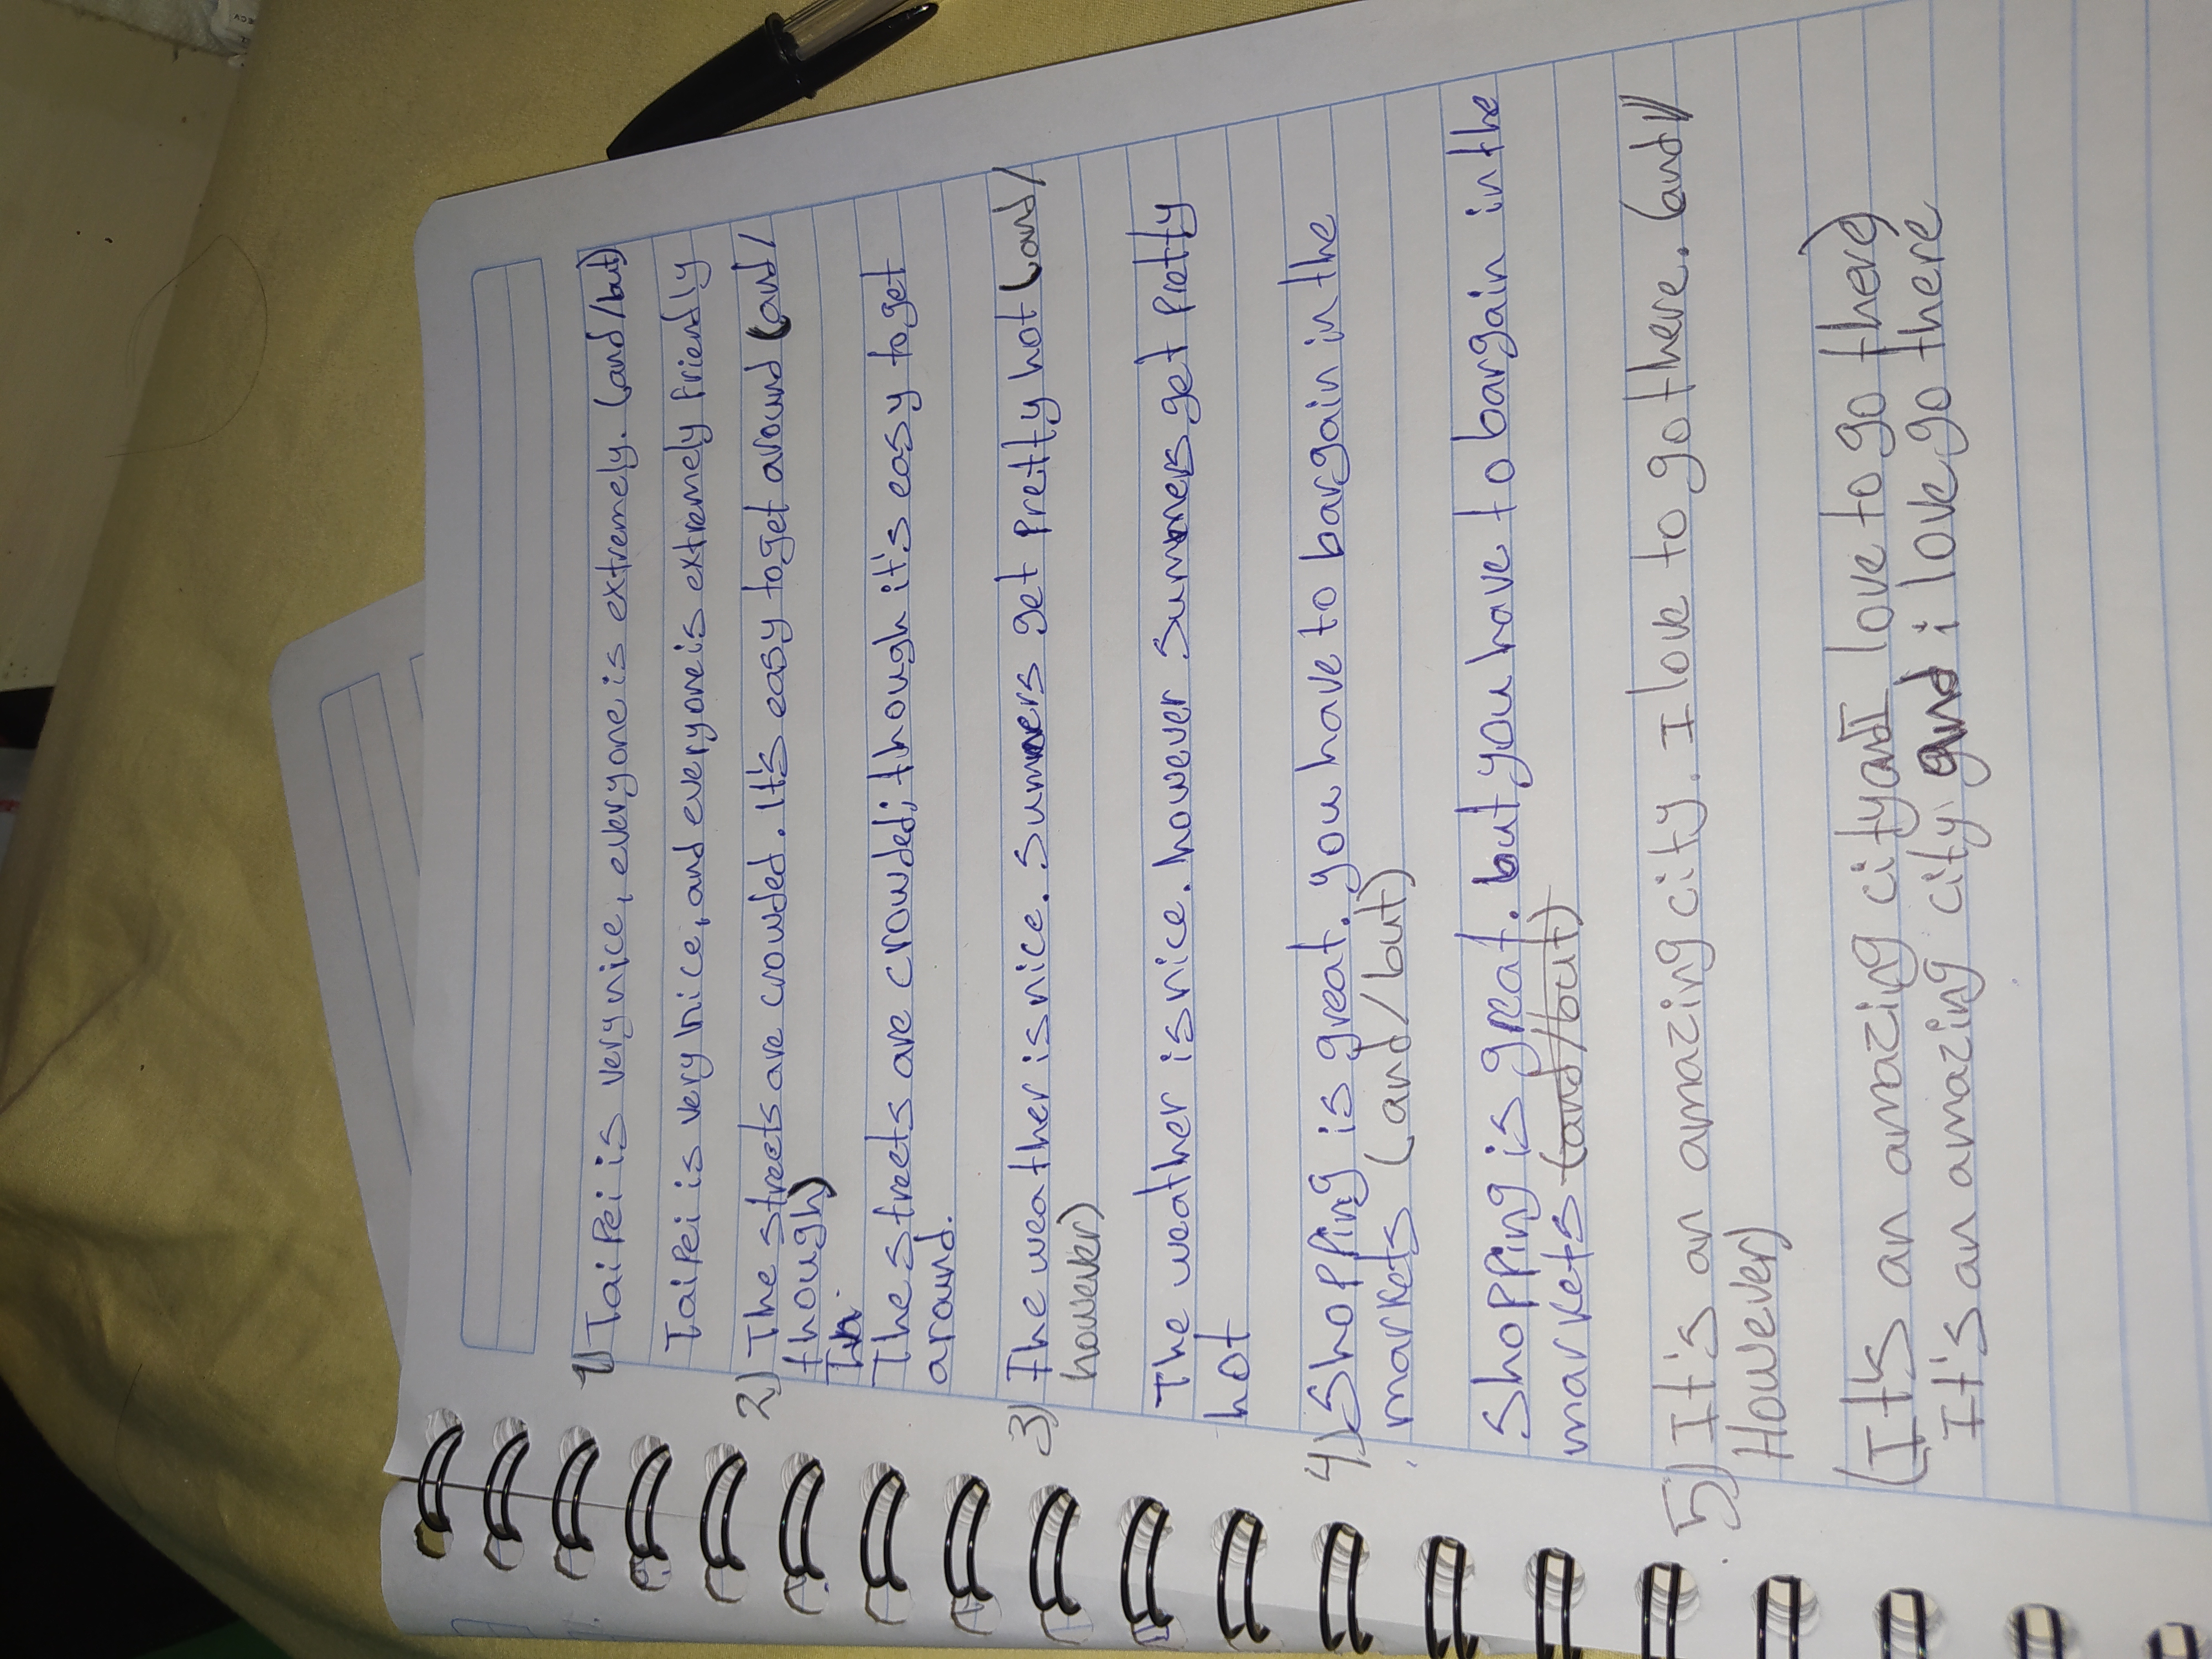 1) Taipei is very nice, everyone is extremely. (and/but)
Taipei is very nice, and everyone is extremely friendly
2) The streets are crowded. It's easy to get around (and/
though)
The streets are crowded; though it's easy to get
around.
3) The weather is nice. Summers get pretty hot (and/
however)
The weather is nice. however summers get pretty
hot
4) Shopping is great. you have to bargain in the
markets (and/but)
Shopping is great. but you have to bargain in the
markets (and/but)
5) It's an amazing city. I love to go there. (and/
However)
(Its an amazing city and I love to go there)
It's an amazing city and i love go there